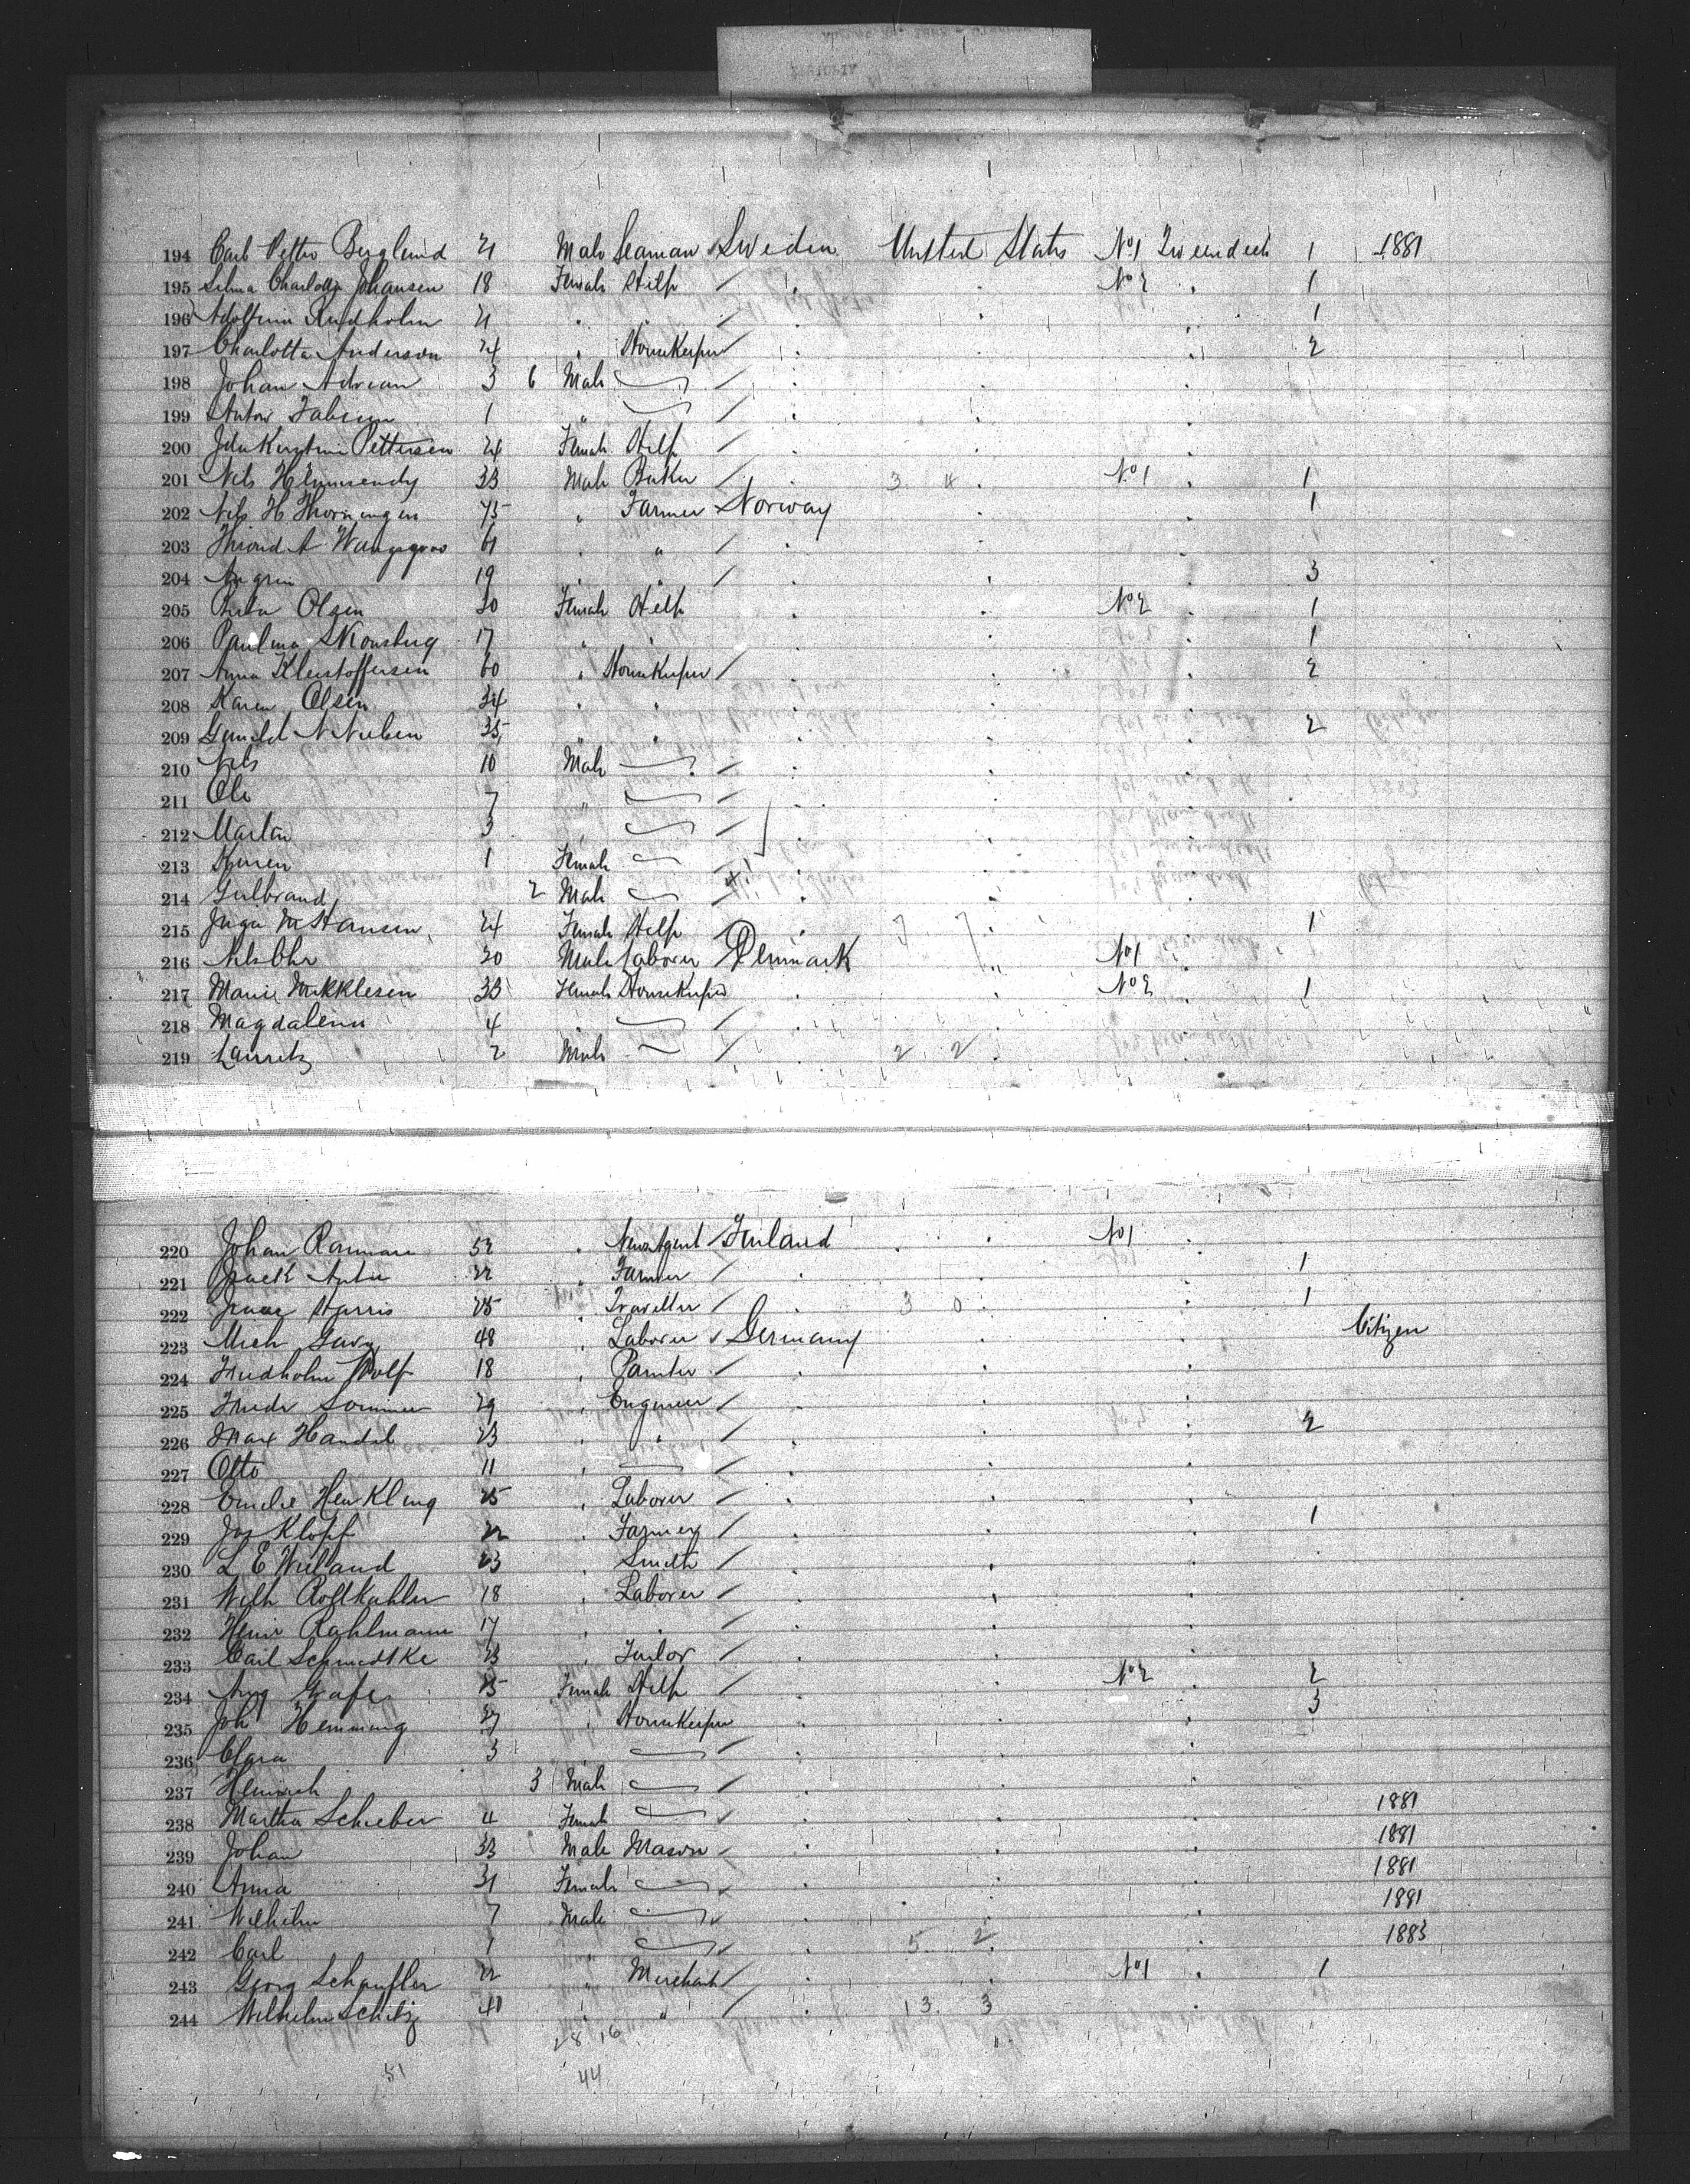 194 Carl Petter Berglund 21 Male Seaman Sweden United States No 1 Tweendeck 1 1881
195 Selma Charlotta Johansen 18 Female Help / " " No 2 " 1
196 Rudholm 21 " " / " " " 1
197 Charlotta Anderson 24 " Housekeeper / " " " 2
198 Johan Adrian 3 6 Male — / " "
199 Anton 1 " — / " " "
200 Ida Pettersen 24 Female Help / " " "
201 Nils 33 Male Baker / " 3 4 " No 1 " 1
202 Nils H 45 " Farmer Norway " " 1
203 A 61 " " / " " "
204 19 " " / " " " 3
205 Olsen 20 Female Help " " No 2 " 1
206 Paulina Skonsberg 17 " " " " " 1
207 Anna 60 " Housekeeper / " " " 2
208 Karen Olsen 34 " " " " "
209 N Nielsen 35 " " " " " 2
210 Nels 10 Male — / " " "
211 Ole 7 " — / " " "
212 Martin 3 " — / " " "
213 Karen 1 Female — " " "
214 Gulbrand 2 Male — / " " "
215 Inga M Hansen 24 Female Help / " 7 7 " " 1
216 Nels Chr 20 Male Laborer Denmark " No 1 "
217 Marie Mikklesen 33 Female Housekeeper " " No 2 " 1
218 Magdalena 4 " — / " " "
219 Lauritz 2 Male — / " 2 2 " "
220 Johan 52 " Finland " " No 1 "
221 22 " Farmer / " " " 1
222 Harris 25 " Traveller / " 3 0 " " 1
223 Mich 48 " Laborer Germany " " Citizen
224 Wolf 18 " Painter / " " "
225 Sommer 29 " Engineer / " " "
226 Max Handel 23 " " / " " " 2
227 Otto 11 " — / " " "
228 Emilie 25 " Laborer / " " "
229 Jos Klopf 22 " Farmer / " " " 1
230 L E Wieland 23 " Smith / " " "
231 Wilh 18 " Laborer / " " "
232 Heinr Rahlmann 17 " " / " " "
233 Carl Schmidtke 23 " Tailor / " " "
234 Aug 25 Female Help / " " No 2 " 2
235 Joh Hemming 27 " Housekeeper " " " 3
236 Clara 3 " — / " " "
237 Heinrich 3 Male — / " " "
238 Martha Schieber 4 Female — / " " " 1881
239 Johan 33 Male Mason / " " " 1881
240 Anna 31 Female — / " " " 1881
241 Wilhelm 7 Male — / " " " 1881
242 Carl 1 " — / " 5 2 " " 1883
243 Georg Schaufler 22 " Merchant / " " No 1 " 1
244 Wilhelm 40 " " / " 13 3 "
28 16
51 44